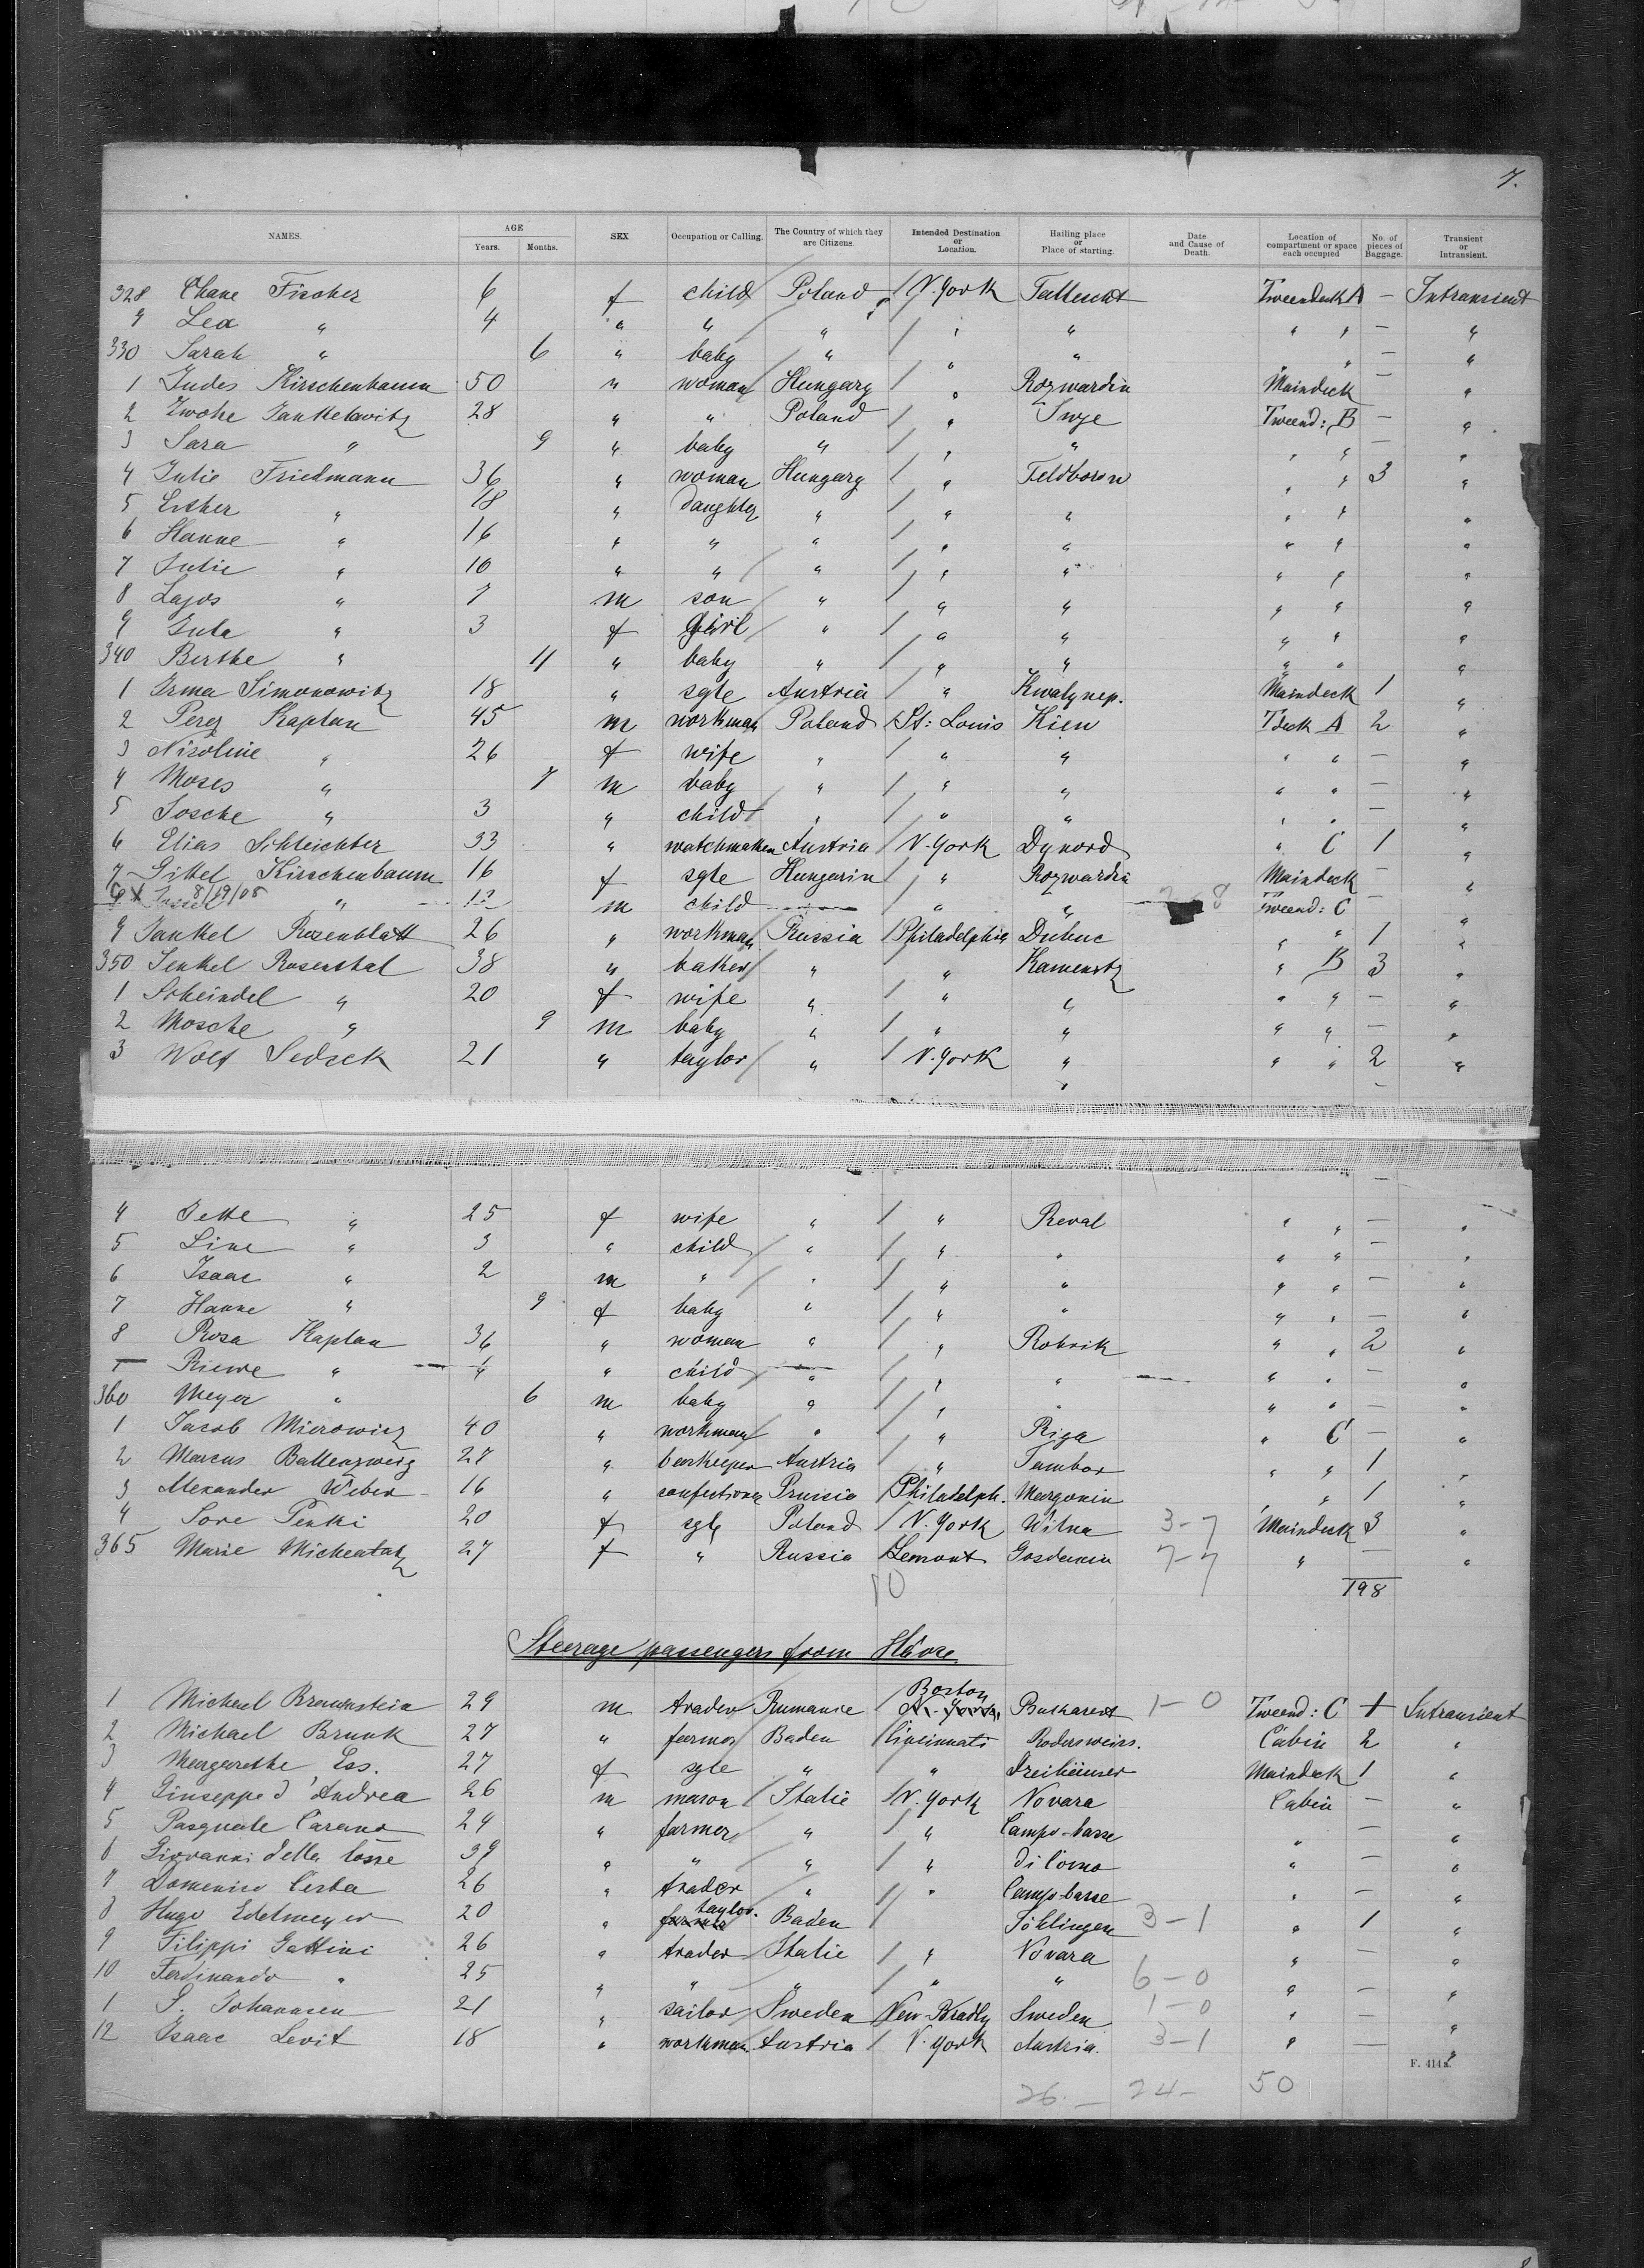 7.
NAMES. AGE Years. Months. SEX Occupation or Calling. The Country of which they are Citizens Intended Destination or Location. Hailing place or Place of starting. Date and Cause of Death. Location of compartment or space each occupied No. of pieces of Baggage. Transient or Intransient.
328 Chane Fischer 6 f child Poland / N. York Tweendeck A — Intransient
9 Lea " 4 " " " / " " " " — "
330 Sarah " 6 " baby " / " " " — "
1 Judes Kirschenbaum 50 " woman Hungary / " Rozwardin Maindeck — "
2 Zwohe Jankelowitz 28 " " Poland / " Tweend: B — "
3 Sara " 9 " baby " / " " " " — "
4 Julie Friedmann 36 " woman Hungary / " Feldboron " " 3 "
5 Esther " 18 " daughter " / " " " " "
6 Hanne " 16 " " " / " " " " "
7 Julie " 10 " " " / " " " " "
8 Lajos " 7 m son " / " " " " "
9 Jula " 3 f Girl " / " " " " "
340 Berthe " 11 " baby " / " " " " "
1 Irma Simonowitz 18 " sgle Austria / " Kwalynep. Maindeck 1 "
2 Perez Kaplan 45 m workman Poland St: Louis Kien Tdeck A 2 "
3 Nisoline " 26 f wife " / " " " " — "
4 Moses " 7 m baby " / " " " " — "
5 Sosche " 3 " child " / " " " " — "
6 Elias Schleichter 33 " watchmaker Austria / N. York Dynord " C 1 "
7 Gittel Kirschenbaum 16 f sgle Hungarin / " Rozwardin Maindeck — "
8/19/08 " 12 m child " " Tweend: C — "
9 Jankel Rosenblatt 26 " workman Russia / Philadelphia Dubuc " " 1 "
350 Jenkel Rosenthal 38 " baker " " Kamenetz " B 3 "
1 Scheindel " 20 f wife " / " " " " — "
2 Mosche " 9 m baby " / " " " " — "
3 Wolf Sedsek 21 " taylor " / N. York " " " 2 "
4 Jette " 25 f wife " / " Reval " " — "
5 Line " 3 " child " / " " " " — "
6 Isaac " 2 m " " / " " " " — "
7 Hanne " 9 f baby " / " " " " — "
8 Rosa Kaplan 36 " woman " / " Robrik " " 2 "
Riewe " 4 " child " / " " " " — "
360 Meyer " 6 m baby " / " " " " — "
1 Jacob Mierowicz 40 " workman " " Riga " C — "
2 Marcus Ballenzweig 27 " barkeeper Austria / " Tambor " " 1 "
3 Alexander Weber 16 " confectioner Prussia / Philadelph. Margonin " " 1 "
4 Sore Penki 20 f sgle Poland / N. York Wilna 3-7 Maindeck 3 "
365 Marie Michentatz 27 f " Russia Lemont 7-7 " — "
10 198
Steerage passengers from Hâvre.
Boston
1 Michael Braunstein 29 m trader Rumanie / N. York Bukarest 1-0 Tweend: C 1 Intransient
2 Michael Brunk 27 " farmer Baden Cincinnati Rodersweirs. Cabin 2 "
3 Margarethe Ess. 27 f sgle " " Dreihäuser Maindeck 1 "
4 Giuseppe d'Andrea 26 m mason Italie / N. York Novara Cabin — "
5 Pasquale Carano 24 " farmer " / " Campo-basse " — "
6 Giovanni della Cosse 39 " " " / " di Como " — "
7 Domenico Cerba 26 " trader " / " Campo-basse " — "
taylor.
8 Hugo Edelmeyer 20 " farmer Baden / Söhlingen 3-1 " 1 "
9 Filippi Gattini 26 " trader Italie / " Novara " — "
10 Ferdinando " 25 " " " / " " 6-0 " — "
1 S. Johannsen 21 " sailor Sweden New-Bradly Sweden 1-0 " — "
12 Isaac Levit 18 " workman Austria / N. York Austria. 3-1 " — "
F. 414a.
26 — 24 — 50